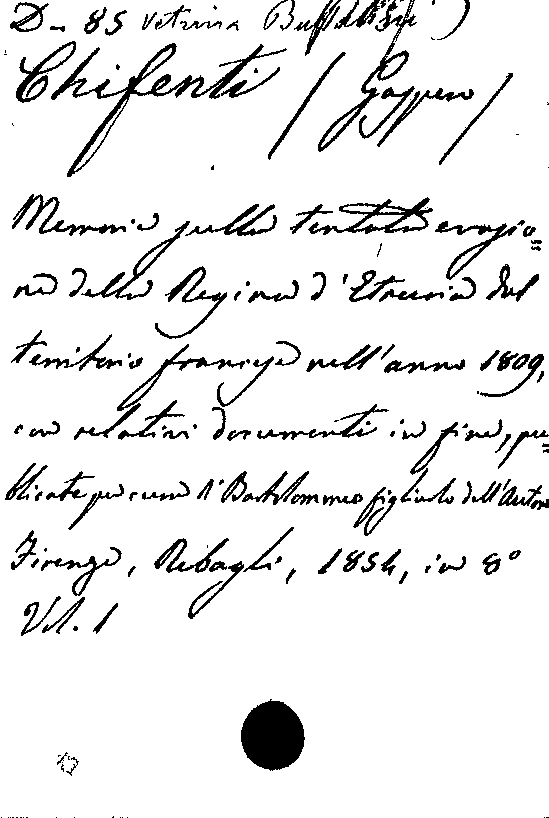 D - 85 Vetrina
Chifenti / Gaspero /
Memorie sulla tentata evasio=
ne della Regina d'Etruria dal
territorio francese nell'anno 1809,
con relativi documenti in fine, pu=
blicate per cura di Bartolommeo figliuolo dell'Autore
Firenze, Ribagli, 1854, in 8°
Vol. 1